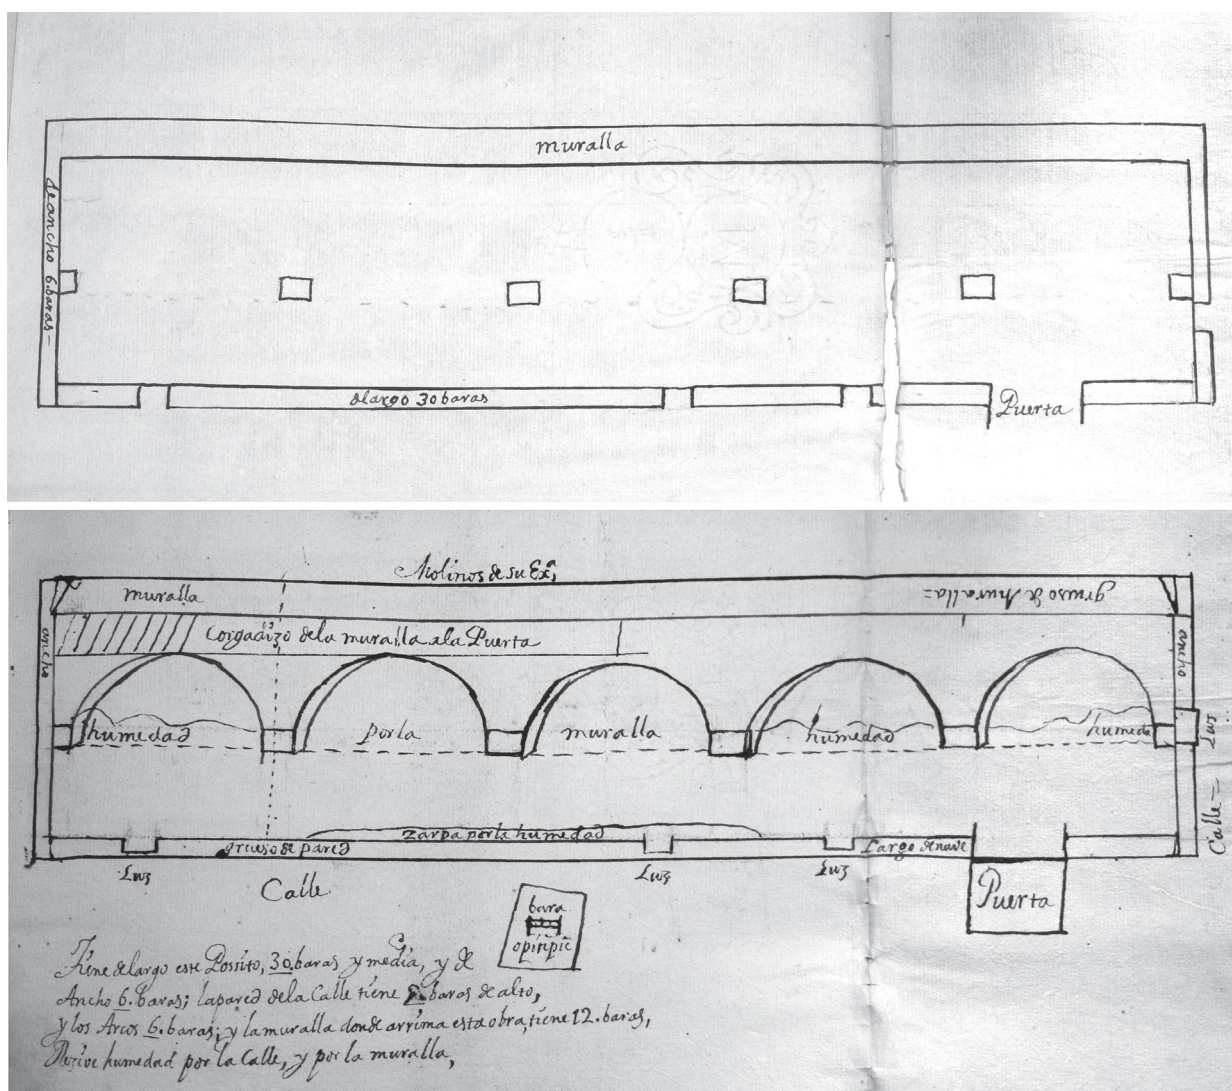 muralla
de ancho 6. baras-
de largo 30 baras
Puerta
Molinos de su Exª,
muralla
grueso de muralla=
Corgadizo de la muralla a la Puerta
ancho
ancho
humedad
por la
muralla
humedad
humeda
Luz
zarpa por la humedad
grueso de pared
Largo de nave
Calle=
Luz
Luz
Luz
Calle
Puerta
bara
Tiene de largo este Possito, 30. baras y media, y de
Ancho 6. baras; la pared de la Calle tiene baras de alto,
y los Arcos 6. baras; y la muralla donde arrima esta obra, tiene 12. baras,
humedad por la Calle, y por la muralla,